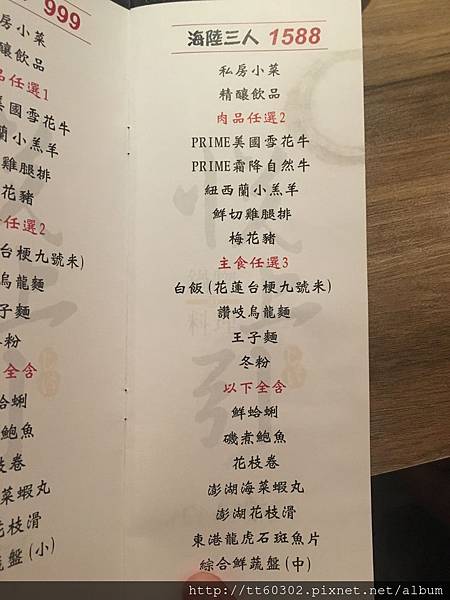 999
房小菜
釀飲品
品任選1
美國雪花牛
蘭小羔羊
雞腿排
花豬
任選2
台梗九號米)
烏龍麵
子麵
粉
全含
蛤蜊
鮑魚
枝卷
菜蝦丸
花枝滑
蔬盤(小)
海陸三人 1588
私房小菜
精釀飲品
肉品任選2
PRIME美國雪花牛
PRIME霜降自然牛
紐西蘭小羔羊
鮮切雞腿排
梅花豬
主食任選3
白飯(花蓮台梗九號米)
讚岐烏龍麵
王子麵
冬粉
以下全含
鮮蛤蜊
磯煮鮑魚
花枝卷
澎湖海菜蝦丸
澎湖花枝滑
東港龍虎石斑魚片
綜合鮮蔬盤(中)
http://tt60302.pixnet.net/album